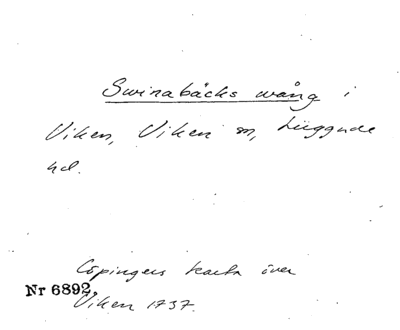 Swinabäcks wång i
Viken, Viken sn, Luggude
hd.
Cöpingers karta över
Nr 6892.
Viken 1737.